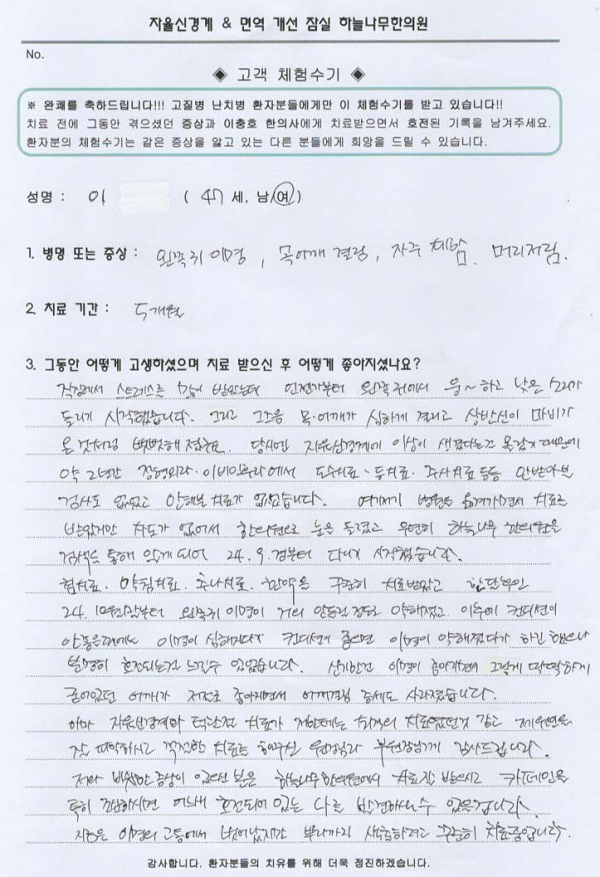 자율신경계 & 면역 개선 잠실 하늘나무한의원
No.
◈ 고객 체험수기 ◈
※ 완쾌를 축하드립니다!!! 고질병 난치병 환자분들에게만 이 체험수기를 받고 있습니다!!
치료 전에 그동안 겪으셨던 증상과 이충호 한의사에게 치료받으면서 호전된 기록을 남겨주세요.
환자분의 체험수기는 같은 증상을 앓고 있는 다른 분들에게 희망을 드릴 수 있습니다.
성명 : 이 ( 47 세, 남/여 )
1. 병명 또는 증상 : 왼쪽귀 이명, 목어깨 결림, 자주 체함, 머리저림.
2. 치료 기간 : 5개월
3. 그동안 어떻게 고생하셨으며 치료 받으신 후 어떻게 좋아지셨나요?
직장에서 스트레스를 많이 받았는데 언젠가부터 왼쪽 귀에서 웅~ 하고 낮은 소리가
들리기 시작했습니다. 그리고 그즈음 목·어깨가 심하게 결리고 상반신이 마비가
온것처럼 뻣뻣해 졌구요. 당시엔 자율신경계에 이상이 생겼다는건 몰랐기 때문에
약 2년간 정형외과·이비인후과에서 도수치료·통치료·주사치료 등등 안받아본
검사도 없었고 안해본 치료가 없었습니다. 여기저기 병원을 옮겨가면서 치료를
받았지만 차도가 없어서 한의원으로 눈을 돌렸고 우연히 하늘나무 한의원을
검색을 통해 알게 되어 24. 9. 경부터 다니기 시작했습니다.
침치료. 약침치료. 추나치료. 한약을 꾸준히 치료받았고 한달 후인
24. 10월말부터 왼쪽귀 이명이 거의 안들릴 정도로 약해졌고. 이후에 컨디션이
안좋을때에는 이명이 심해지다가 컨디션이 좋으면 이명이 약해졌다가 하긴 했으나
분명히 호전되는걸 느낄수 있었습니다. 신기한건 이명이 좋아지면서 그렇게 딱딱하게
굳어있던 어깨가 저절로 좋아지면서 어깨결림 증세도 사라졌습니다.
아마 자율신경계와 턱관절 치료가 저한테는 최적의 치료였던것 같고 제 원인을
잘 파악하시고 적절한 치료를 해주신 원장님과 부원장님께 감사드립니다.
저와 비슷한 증상이 있으신 분은 하늘나무한의원에서 치료 잘 받으시고 카페인을
특히 조심하시면 어느새 호전되어 있는 나를 발견하실수 있을겁니다.
지금은 이명의 고통에서 벗어났지만 뿌리까지 색출하려고 꾸준히 치료중입니다.
감사합니다. 환자분들의 치유를 위해 더욱 정진하겠습니다.